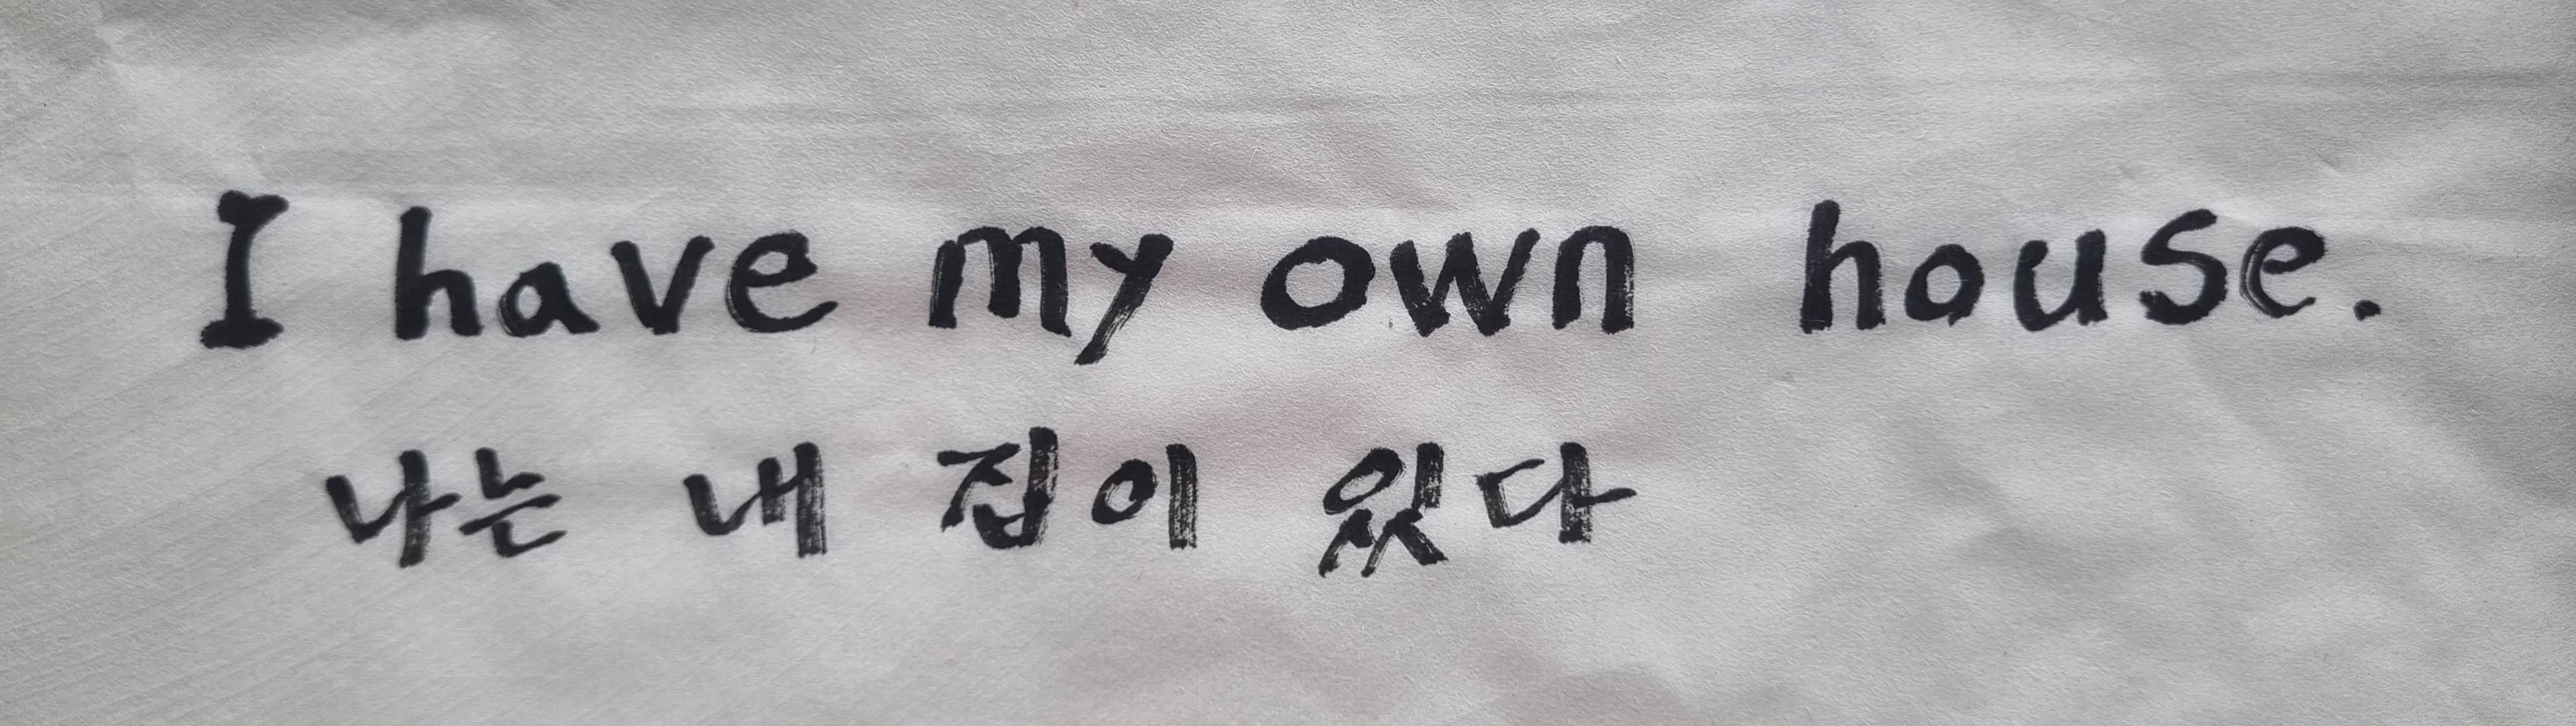 I have my own house.
나는 내 집이 있다